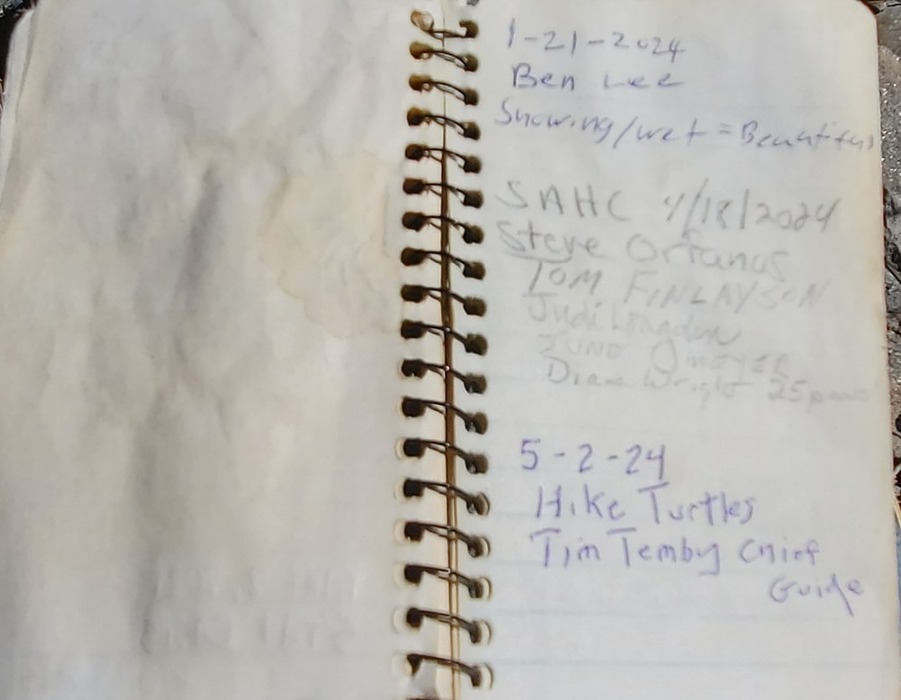 1-21-2024
Ben Lee
Snowing/wet = Beautiful
SAHC 4/18/2024
Steve Orfanos
TOM FINLAYSON
Judi
JUNO
Diane Wright 25
5-2-24
Hike Turtles
Tim Temby Chief
Guide